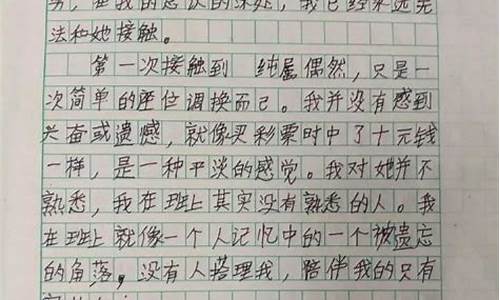 为，在我的意识的深处，我已经永远无
法和她接触。
第一次接触到 纯属偶然，只是一
次简单的座位调换而已。我并没有感到
兴奋或遗憾，就像买彩票时中了十元钱
一样，是一种平淡的感觉。我对她并不
熟悉，我在班上其实没有熟悉的人。我
在班上就像一个人记忆中的一个被遗忘
的角落，没有人搭理我，陪伴我的只有